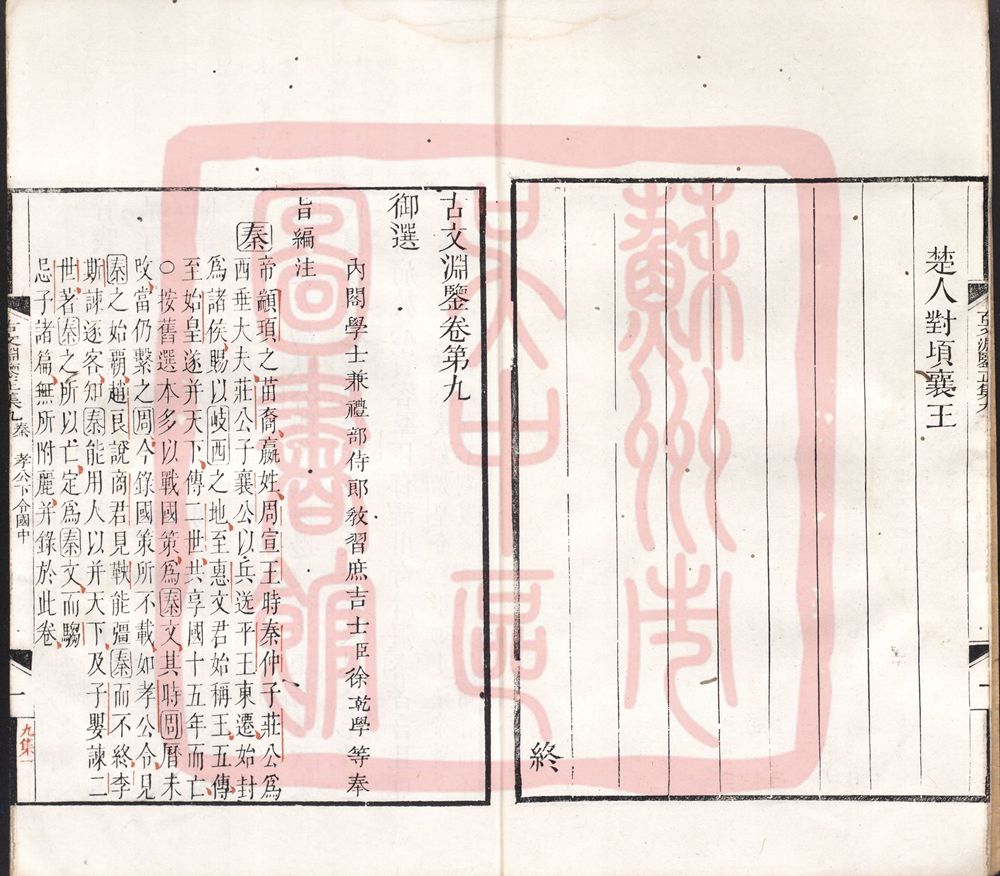 楚人對頃襄王
終
古文淵鑒卷第九
御選
內閣學士兼禮部侍郎敎習庶吉士臣徐乾學等奉
旨編注
秦帝顓頊之苗裔嬴姓周宣王時秦仲子莊公爲
西垂大夫莊公子襄公以兵送平王東遷始封
爲諸侯賜以岐西之地至惠文君始稱王五傳
至始皇遂并天下傳二世共享國十五年而亡
○按舊選本多以戰國策爲秦文其時周曆未
攺當仍繫之周今錄國策所不載如孝公令見
秦之始覇趙良說商君見鞅能彊秦而不終李
斯諫逐客知秦能用人以并天下及子嬰諫二
世著秦之所以亡定爲秦文而騶
忌子諸篇無所附麗并錄於此卷
古文淵鑒正集九 秦 孝公下令國中
一
九集一
蘇州市
吳中區
圖書館